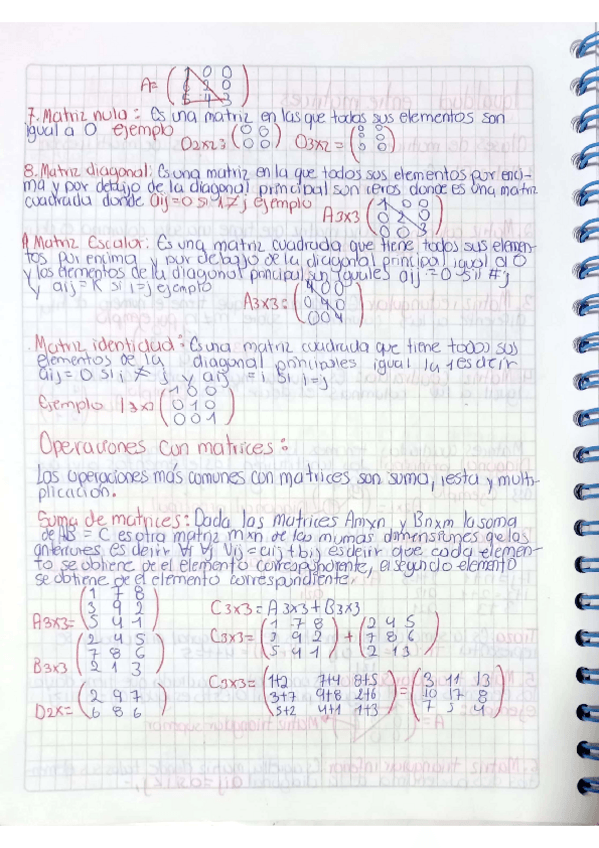 A= (1 0 0
2 0
5 4 3)
7. Matriz nula: Es una matriz en las que todos sus elementos son
igual a 0 ejemplo O2x23 (0 0
0 0) O3x2 = (0 0
0 0
0 0)
8. Matriz diagonal: Es una matriz en la que todos sus elementos por enci-
ma y por debajo de la diagonal principal son ceros donde es una matriz
cuadrada donde aij=0 si i≠j ejemplo
A3x3 (1 0 0
0 2 0
0 0 3)
Matriz Escalar: Es una matriz cuadrada que tiene todos sus elemen-
tos por encima y por debajo de la diagonal principal igual al 0
y los elementos de la diagonal principal son iguales aij = 0 si i ≠j
y aij = K si i=j ejemplo
A3x3 = (4 0 0
0 4 0
0 0 4)
Matriz identidad: Es una matriz cuadrada que tiene todos sus
elementos de la diagonal principales igual la 1 es decir
aij = 0 si i ≠ j y aij = i si i=j
Ejemplo (1 0 0
0 1 0
0 0 1)
Operaciones con matrices:
Las operaciones más comunes con matrices son suma, resta y multi-
plicación.
Suma de matrices: Dada las matrices Amxn y Bnxm la soma
de AB = C es otra matriz mxn de las mismas dimensiones que los
anteriores es decir ∀i ∀j Vij = aij + bij es decir que cada elemen-
to se obtiene de el elemento correspondiente, el segundo elemento
se obtiene de el elemento correspondiente.
A3x3= (1 7 8
3 9 2
5 4 1)
C3x3 = A3x3 + B3x3
B3x3 (2 4 5
7 8 6
2 1 3)
C3x3= (1 7 8
3 9 2
5 4 1) + (2 4 5
7 8 6
2 1 3)
D2x= (2 9 7
6 8 6)
C3x3= (1+2 7+4 8+5
3+7 9+8 2+6
5+2 4+1 1+3) = (3 11 13
10 17 8
7 5 4)